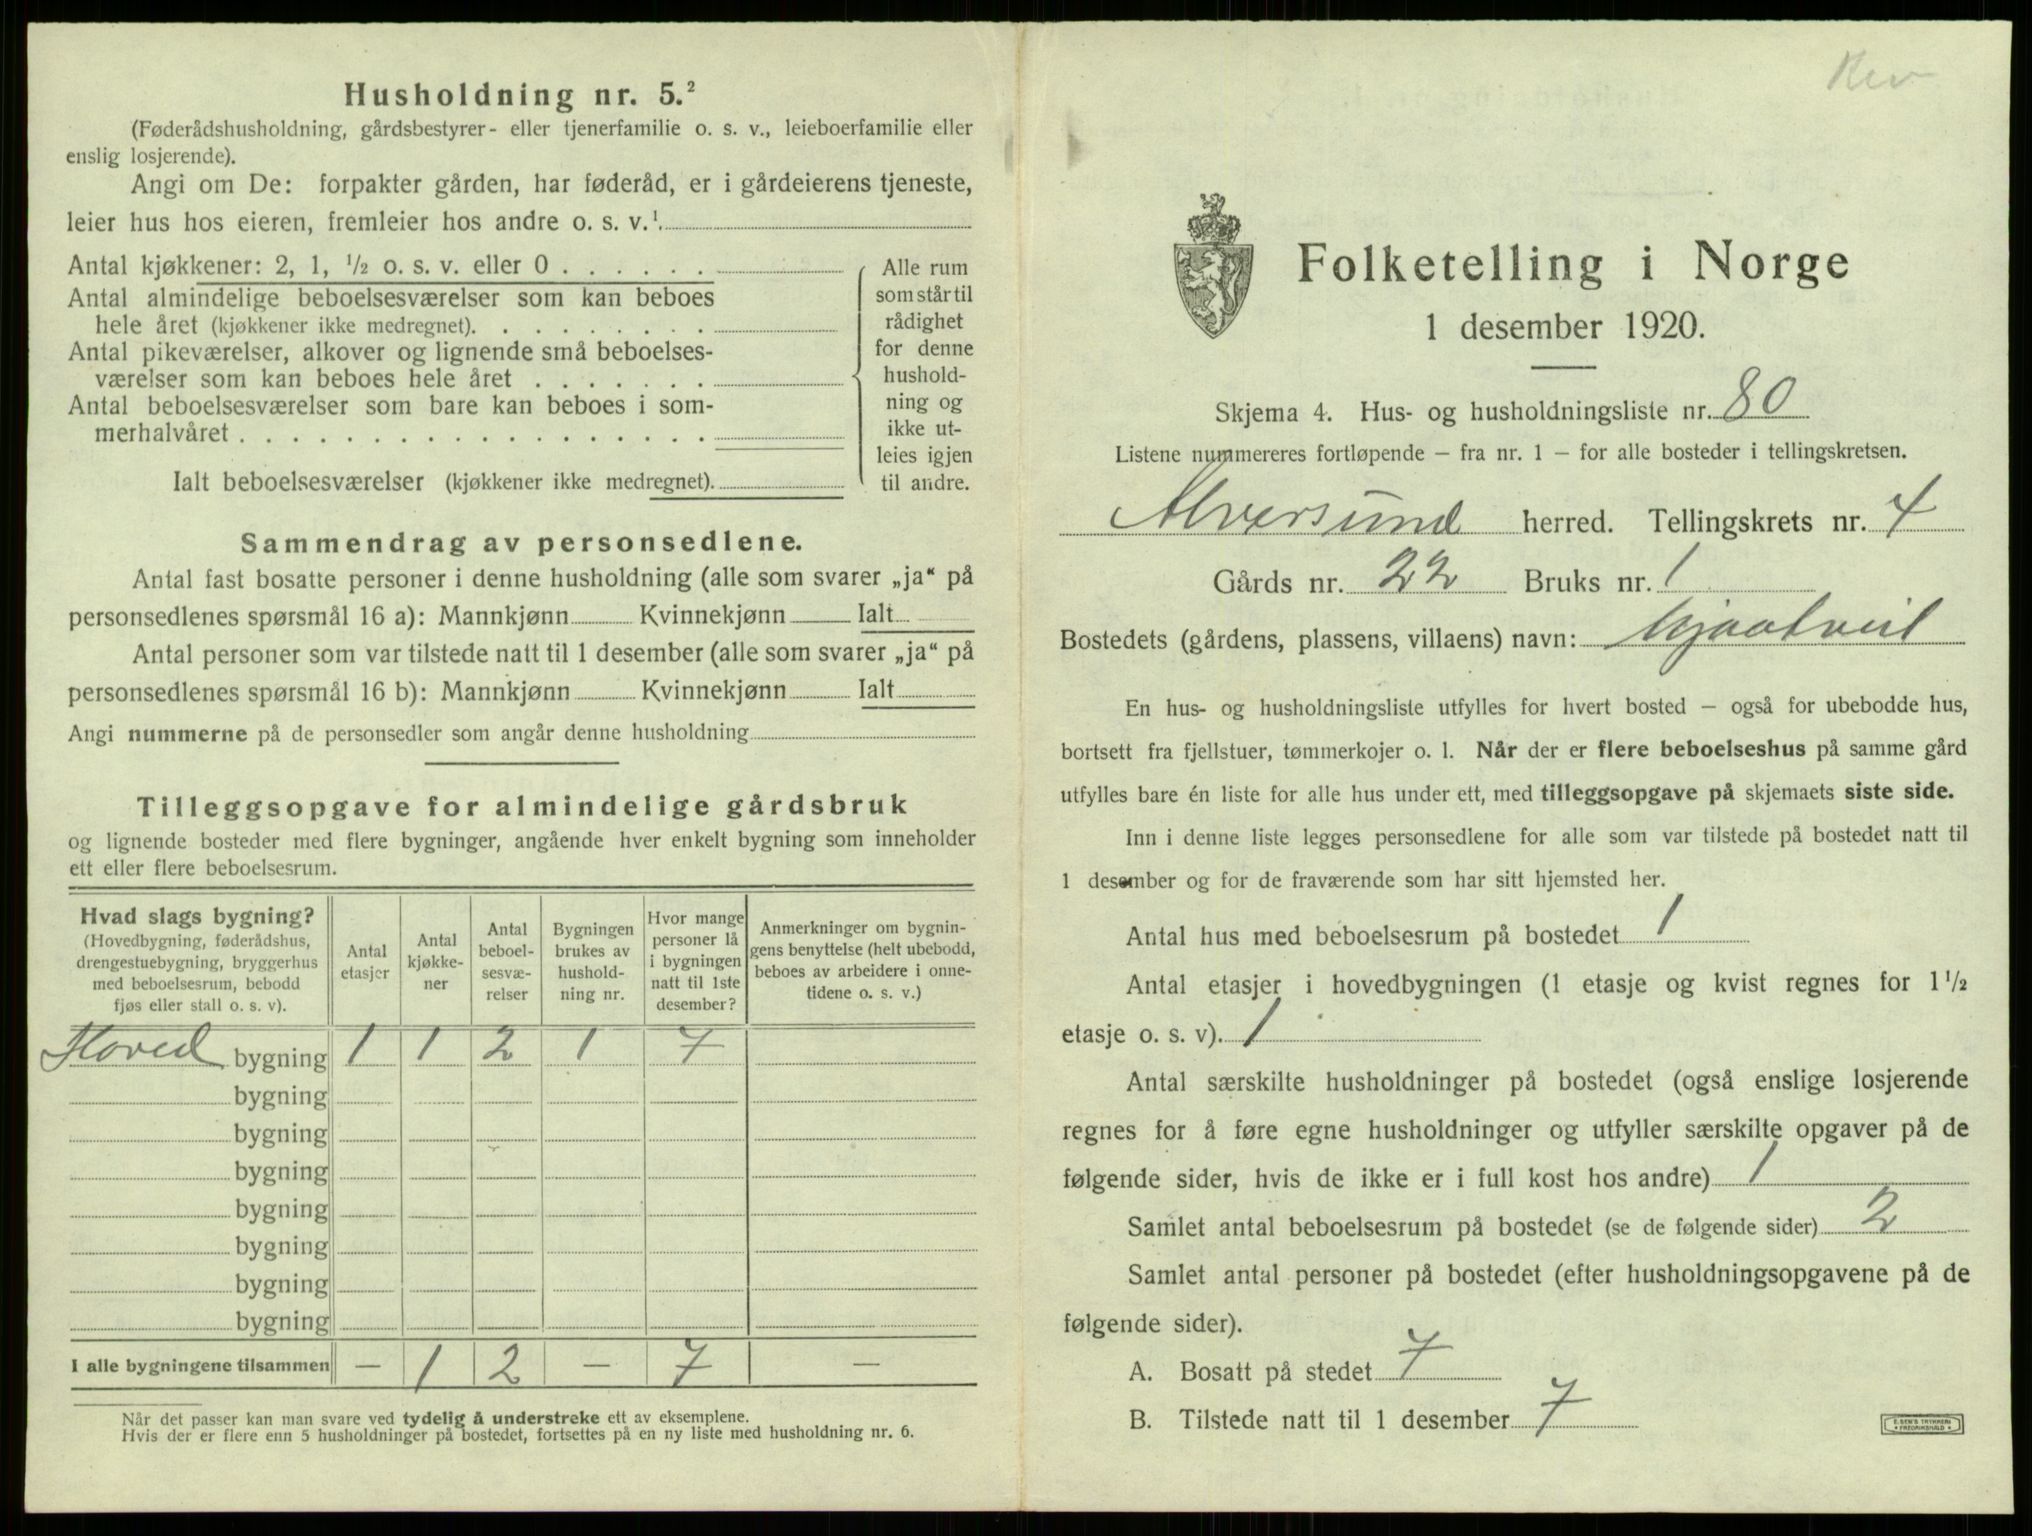 Husholdning nr. 5.²
(Føderådshusholdning, gårdsbestyrer- eller tjenerfamilie o. s. v., leieboerfamilie eller
enslig losjerende).
Angi om De: forpakter gården, har føderåd, er i gårdeierens tjeneste,
leier hus hos eieren, fremleier hos andre o. s. v.¹
Antal kjøkkener: 2, 1, ½ o. s. v. eller 0 . . . . . .
Antal almindelige beboelsesværelser som kan beboes
hele året (kjøkkener ikke medregnet). . . . . . . . .
Antal pikeværelser, alkover og lignende små beboelses-
værelser som kan beboes hele året . . . . . . .
Antal beboelsesværelser som bare kan beboes i som-
merhalvåret . . . . . . . . . . . . . . . . . .
Ialt beboelsesværelser (kjøkkener ikke medregnet).
Alle rum
som står til
rådighet
for denne
hushold-
ning og
ikke ut-
leies igjen
til andre.
Sammendrag av personsedlene.
Antal fast bosatte personer i denne husholdning (alle som svarer „ja“ på
personsedlenes spørsmål 16 a): Mannkjønn Kvinnekjønn Ialt
Antal personer som var tilstede natt til 1 desember (alle som svarer „ja“ på
personsedlenes spørsmål 16 b): Mannkjønn Kvinnekjønn Ialt
Angi nummerne på de personsedler som angår denne husholdning
Tilleggsopgave for almindelige gårdsbruk
og lignende bosteder med flere bygninger, angående hver enkelt bygning som inneholder
ett eller flere beboelsesrum.
Hvad slags bygning?
(Hovedbygning, føderådshus,
drengestuebygning, bryggerhus
med beboelsesrum, bebodd
fjøs eller stall o. s. v).
Antal
etasjer
Antal
kjøkke-
ner
Antal
beboel-
sesvæ-
relser
Bygningen
brukes av
hushold-
ning nr.
Hvor mange
personer lå
i bygningen
natt til 1ste
desember?
Anmerkninger om bygnin-
gens benyttelse (helt ubebodd,
beboes av arbeidere i onne-
tidene o. s. v.)
Hoved bygning 1 1 2 1 7
bygning
bygning
bygning
bygning
bygning
bygning
bygning
I alle bygningene tilsammen — 1 2 — 7 —
Når det passer kan man svare ved tydelig å understreke ett av eksemplene.
Hvis der er flere enn 5 husholdninger på bostedet, fortsettes på en ny liste med husholdning nr. 6.
Rev
Folketelling i Norge
1 desember 1920.
Skjema 4. Hus- og husholdningsliste nr. 80
Listene nummereres fortløpende – fra nr. 1 – for alle bosteder i tellingskretsen.
Alversund herred. Tellingskrets nr. 4
Gårds nr. 22 Bruks nr. 1
Bostedets (gårdens, plassens, villaens) navn:
En hus- og husholdningsliste utfylles for hvert bosted – også for ubebodde hus,
bortsett fra fjellstuer, tømmerkojer o. l. Når der er flere beboelseshus på samme gård
utfylles bare én liste for alle hus under ett, med tilleggsopgave på skjemaets siste side.
Inn i denne liste legges personsedlene for alle som var tilstede på bostedet natt til
1 desember og for de fraværende som har sitt hjemsted her.
Antal hus med beboelsesrum på bostedet 1
Antal etasjer i hovedbygningen (1 etasje og kvist regnes for 1½
etasje o. s. v). 1
Antal særskilte husholdninger på bostedet (også enslige losjerende
regnes for å føre egne husholdninger og utfyller særskilte opgaver på de
følgende sider, hvis de ikke er i full kost hos andre) 1
Samlet antal beboelsesrum på bostedet (se de følgende sider) 2
Samlet antal personer på bostedet (efter husholdningsopgavene på de
følgende sider).
A. Bosatt på stedet 7
B. Tilstede natt til 1 desember 7